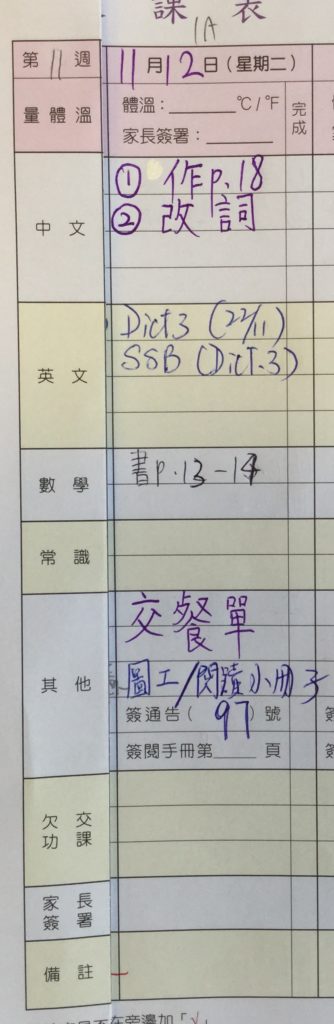 課 表
1A
第 11 週
11 月 12 日 (星期二)
量 體 溫
體溫：______ °C / °F
家長簽署：______
完成
中 文
① 作p.18
② 改 詞
英 文
Dict 3 (22/11)
SSB (Dict.3)
數 學
書p.13-14
常 識
其 他
交餐單
圖工/閱蹤小冊子
簽通告 ( 97 ) 號
簽閱手冊第____頁
欠 交
功 課
家 長
簽 署
備 註